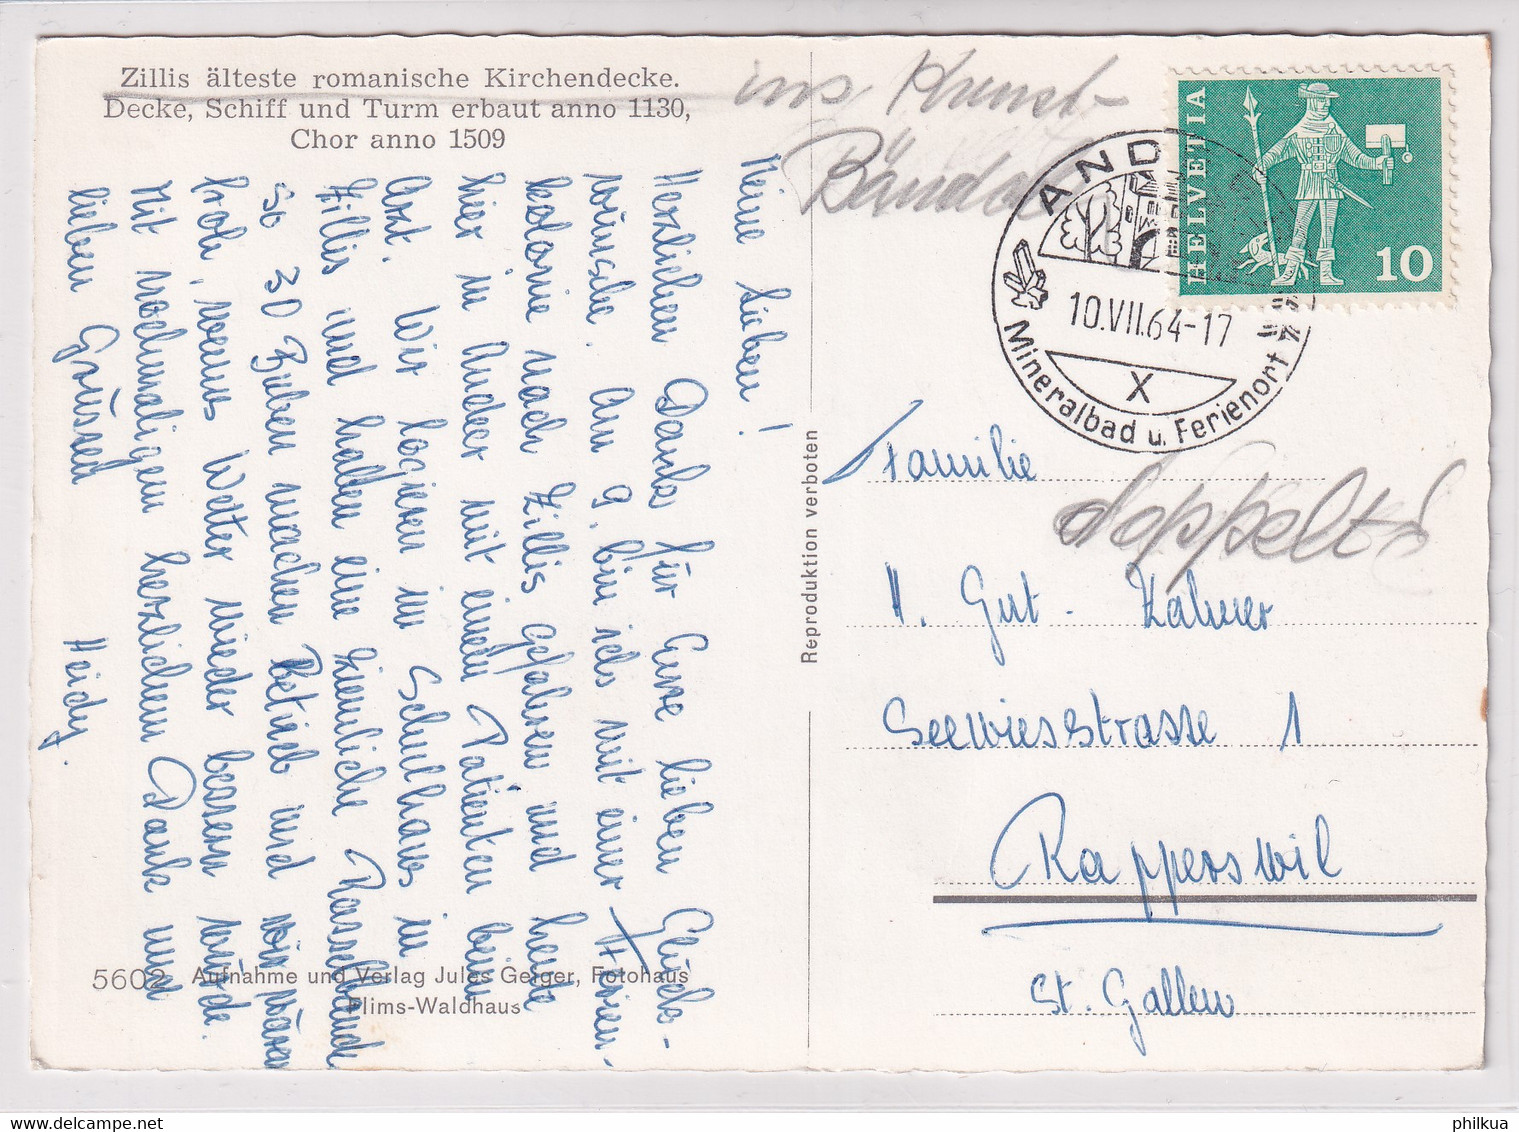 Zillis älteste romanische Kirchendecke.
Decke, Schiff und Turm erbaut anno 1130,
Chor anno 1509
ins Kunst-
HELVETIA
10
AND
10.VII.64-17
X
Mineralbad u. Ferienort
Meine Lieben!
Herzlichen Dank für Eure lieben Glück-
wünsche. Am 9. bin ich mit einer Ferien-
kolonie nach Zillis gefahren und heute
hier in Andeer mit einem Patienten beim
Arzt. Wir logieren im Schulhaus in
Zillis und haben eine ziemliche Rasselbande
so 30 Buben machen Betrieb und wir wären
froh, wenns Wetter wieder bessern würde.
Mit nochmaligem herzlichem Dank und
lieben Grüssen
Heidy.
Reproduktion verboten
Familie
doppelt
H. Gut - Zahner
Seewiesstrasse 1
Rapperswil
St. Gallen
5602 Aufnahme und Verlag Jules Geiger, Fotohaus
Flims-Waldhaus
philkua.com